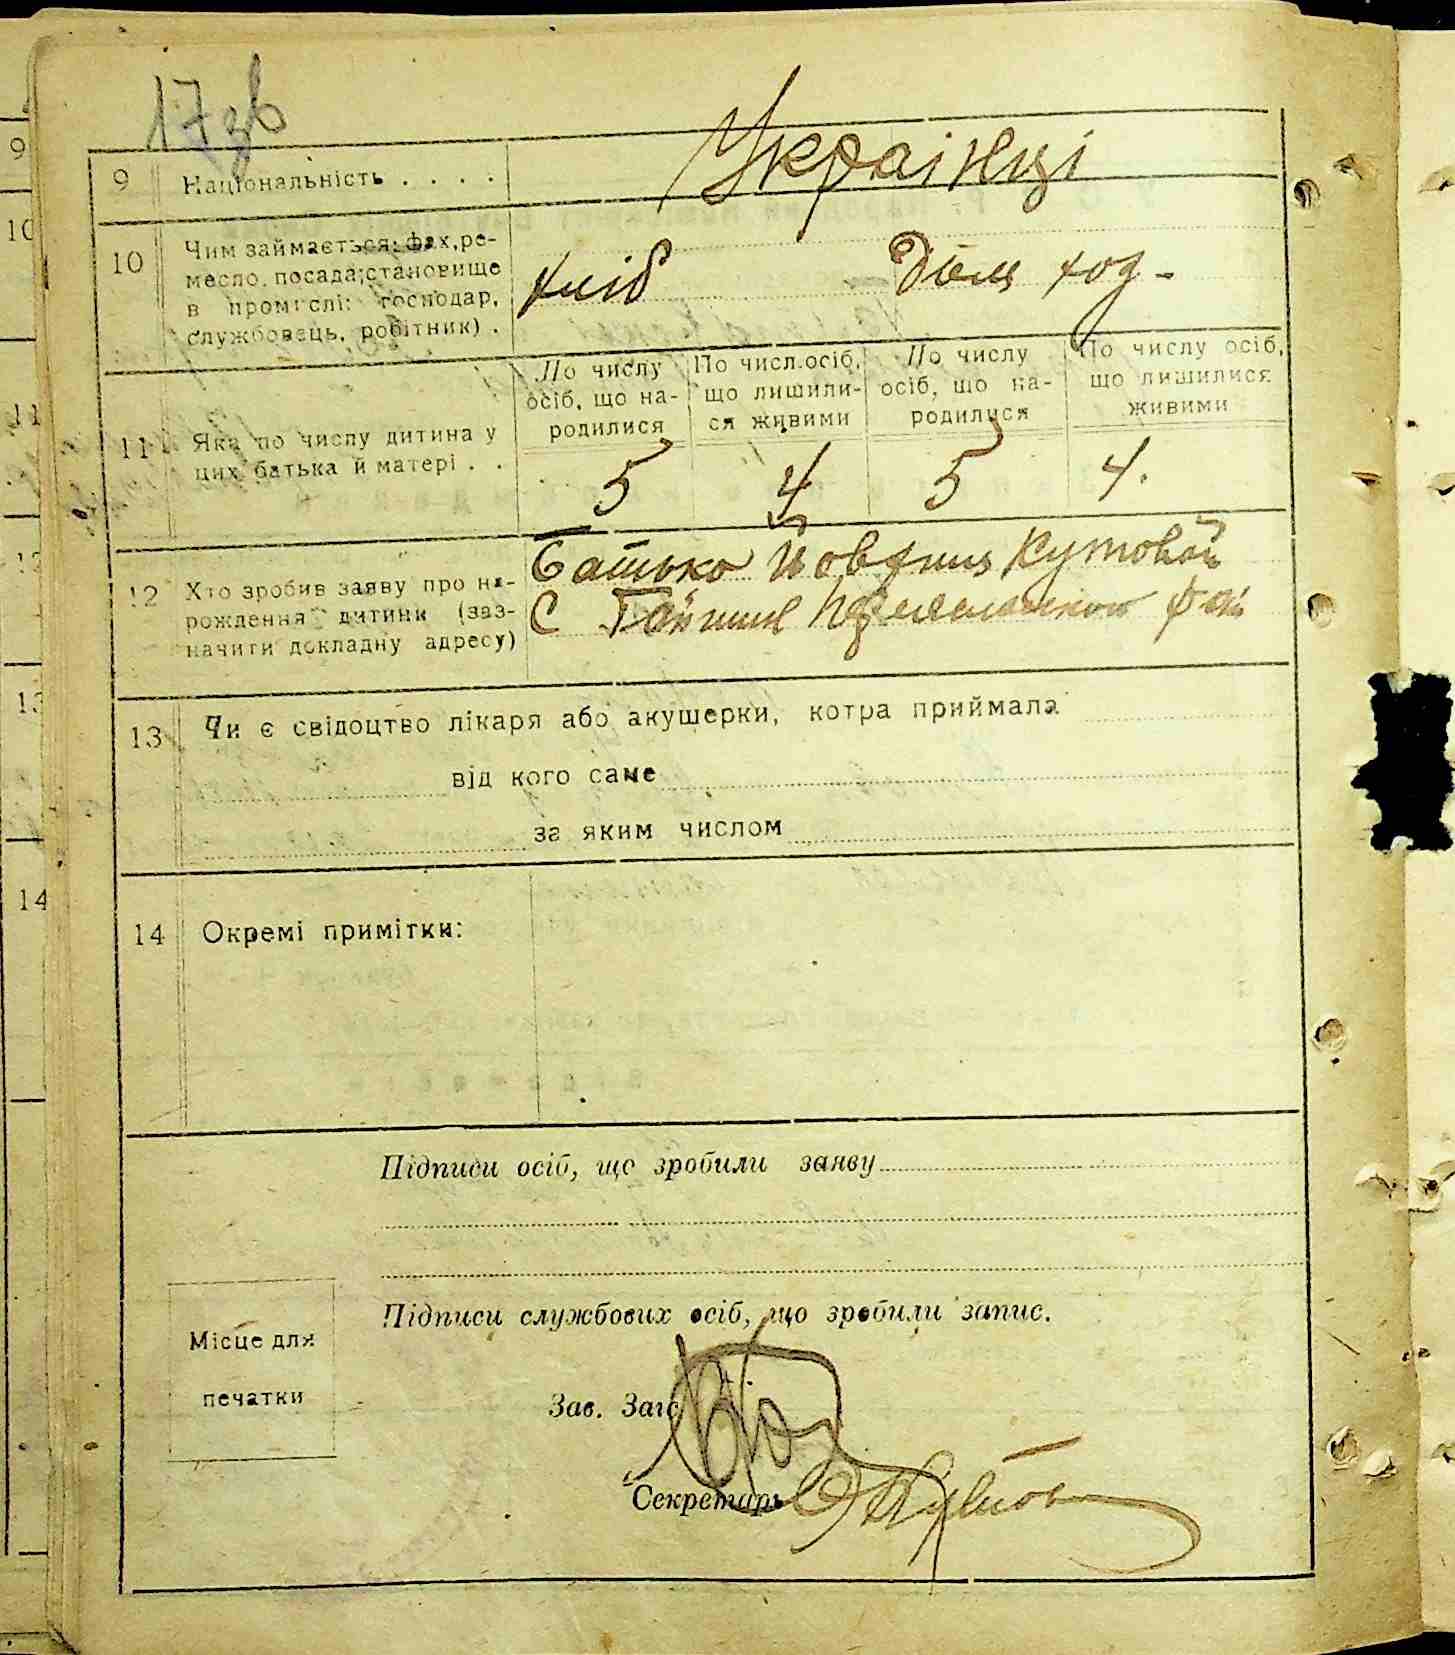 17зв
9 Національність . . . . Українці
10 Чим займається: фах, ре-
месло, посада; становище
в промислі: господар,
службовець, робітник) .
хліб Дом. хоз-
11 Яка по числу дитина у
цих батька й матері . .
По числу
осіб, що на-
родилися
По числ. осіб,
що лишили-
ся живими
По числу
осіб, що на-
родилися
По числу осіб,
що лишилися
живими
5 4 5 4.
12 Хто зробив заяву про на-
рождення дитини (заз-
начити докладну адресу)
Батько Йовхим Кутовой
С
13 Чи є свідоцтво лікаря або акушерки, котра приймала
від кого саме
за яким числом
14 Окремі примітки:
Підписи осіб, що зробили заяву
Підписи службових осіб, що зробили запис.
Місце для
печатки
Зав. Загс
Секретарь
9
10
11
12
13
14